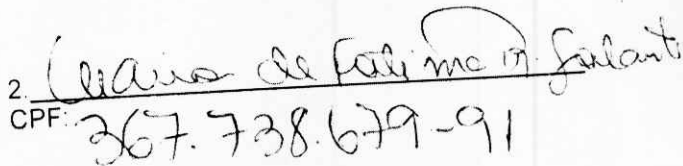 2. Maria de Fatima R. Galante
CPF: 367.738.679-91